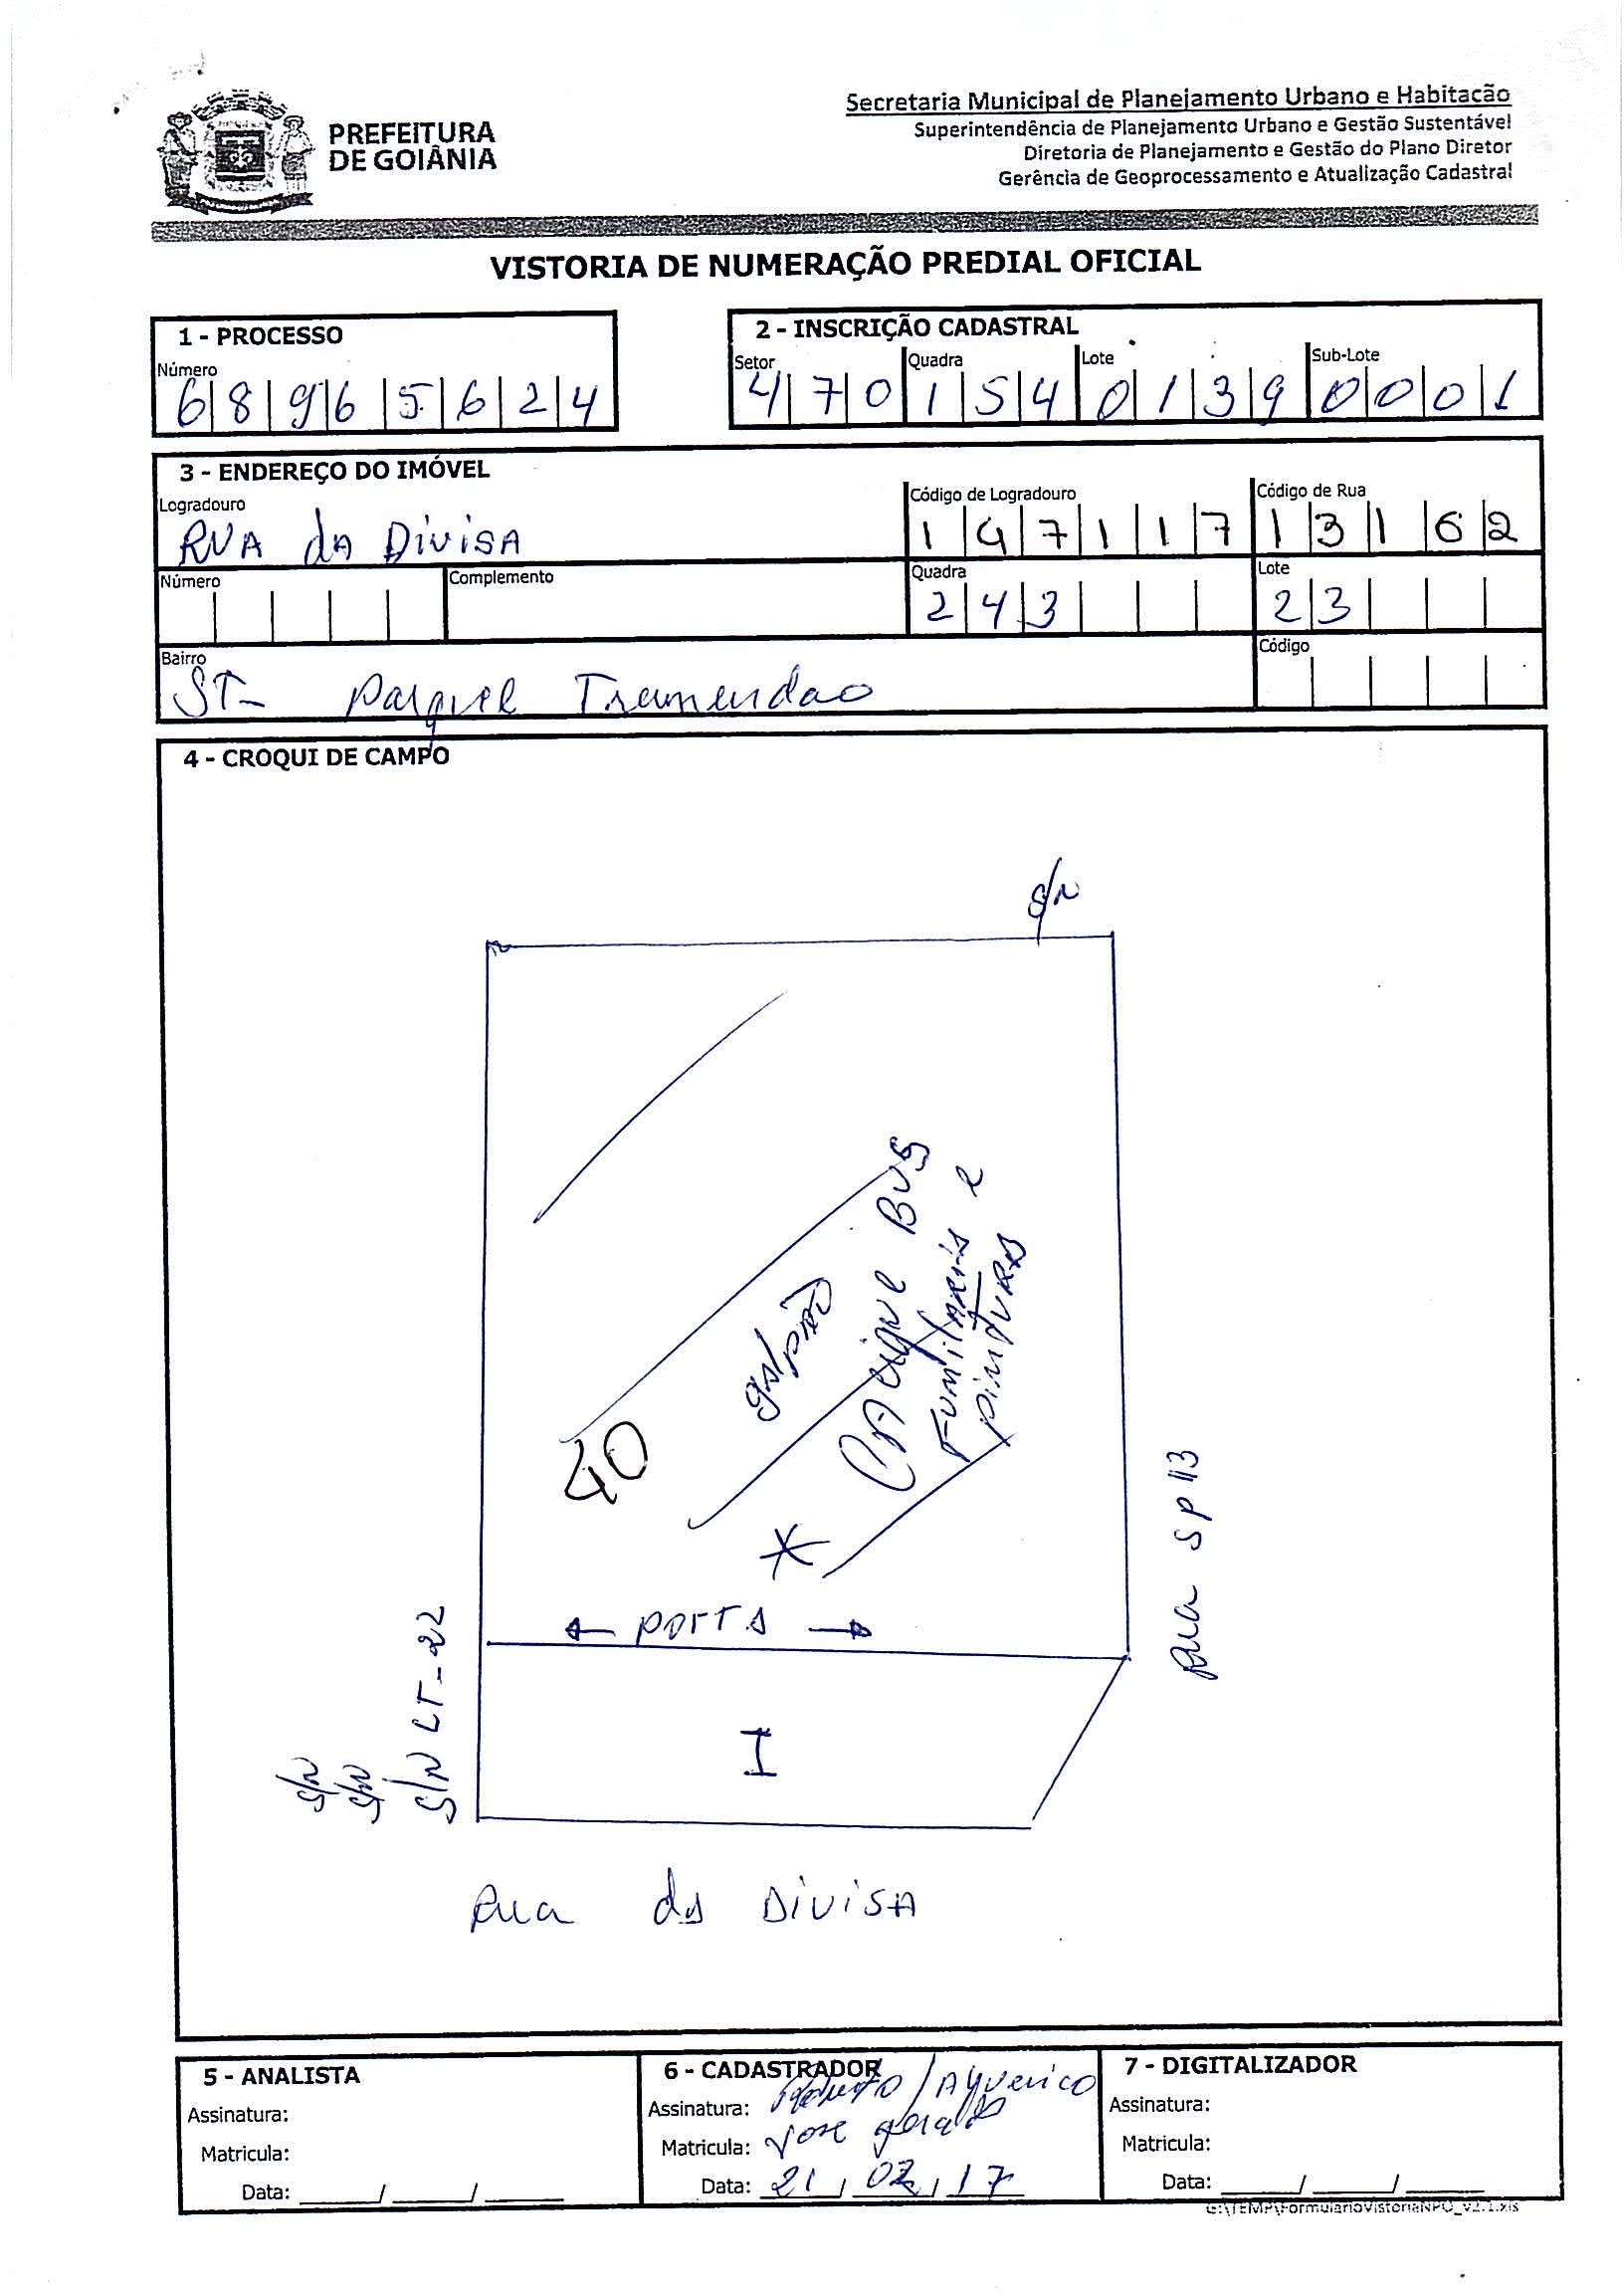 PREFEITURA
DE GOIÂNIA
Secretaria Municipal de Planejamento Urbano e Habitação
Superintendência de Planejamento Urbano e Gestão Sustentável
Diretoria de Planejamento e Gestão do Plano Diretor
Gerência de Geoprocessamento e Atualização Cadastral
VISTORIA DE NUMERAÇÃO PREDIAL OFICIAL
1 - PROCESSO
Número
68965624
2 - INSCRIÇÃO CADASTRAL
Setor Quadra Lote Sub-Lote
470 154 0139 0001
3 - ENDEREÇO DO IMÓVEL
Logradouro Código de Logradouro Código de Rua
RUA dA DiviSA 147117 13162
Número Complemento Quadra Lote
243 23
Bairro Código
ST- parque Tremendao
4 - CROQUI DE CAMPO
S/N
galpão
CAcique BUS
FUNilARiA e
pinTURAS
40
*
← porTA →
I
S/N
S/N
S/N LT-22
Rua SP 113
Rua da DiviSA
5 - ANALISTA
Assinatura:
Matricula:
Data: ____/____/____
6 - CADASTRADOR
Assinatura: Roberto /
Matricula: José geraldo
Data: 21/02/17
7 - DIGITALIZADOR
Assinatura:
Matricula:
Data: ____/____/____
G:\TEMP\FormularioVistoriaNPO_v2.1.xls